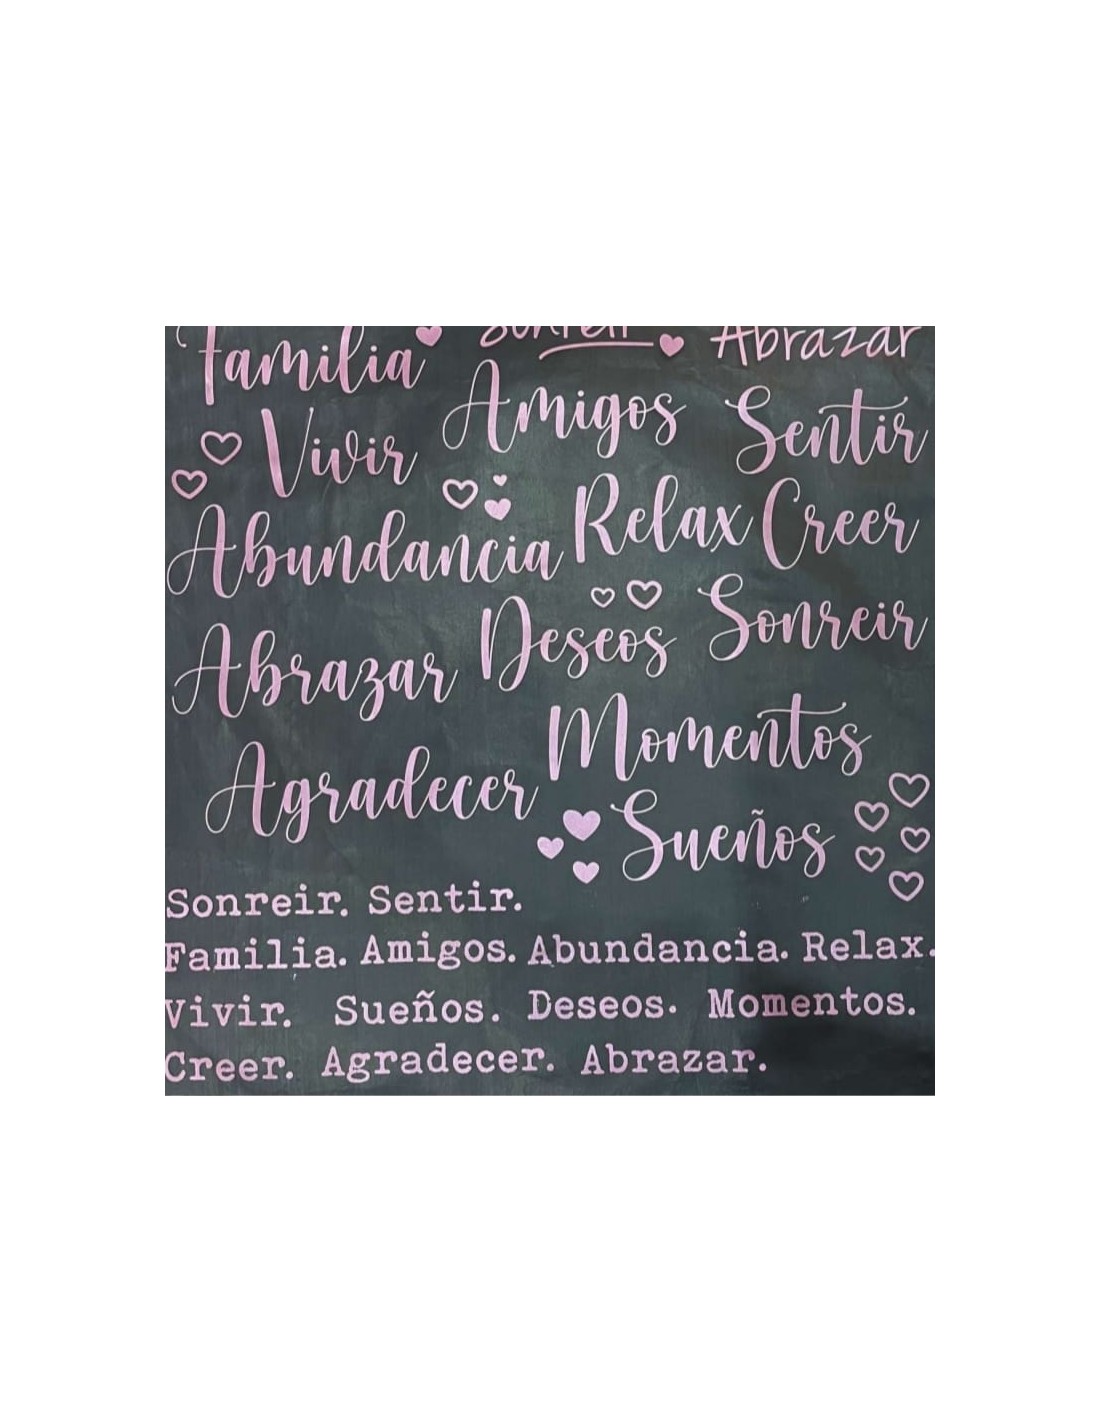 Familia Sonreir Abrazar
Vivir Amigos Sentir
Abundancia Relax Creer
Abrazar Deseos Sonreir
Agradecer Momentos
Sueños
Sonreir. Sentir.
Familia. Amigos. Abundancia. Relax.
Vivir. Sueños. Deseos. Momentos.
Creer. Agradecer. Abrazar.